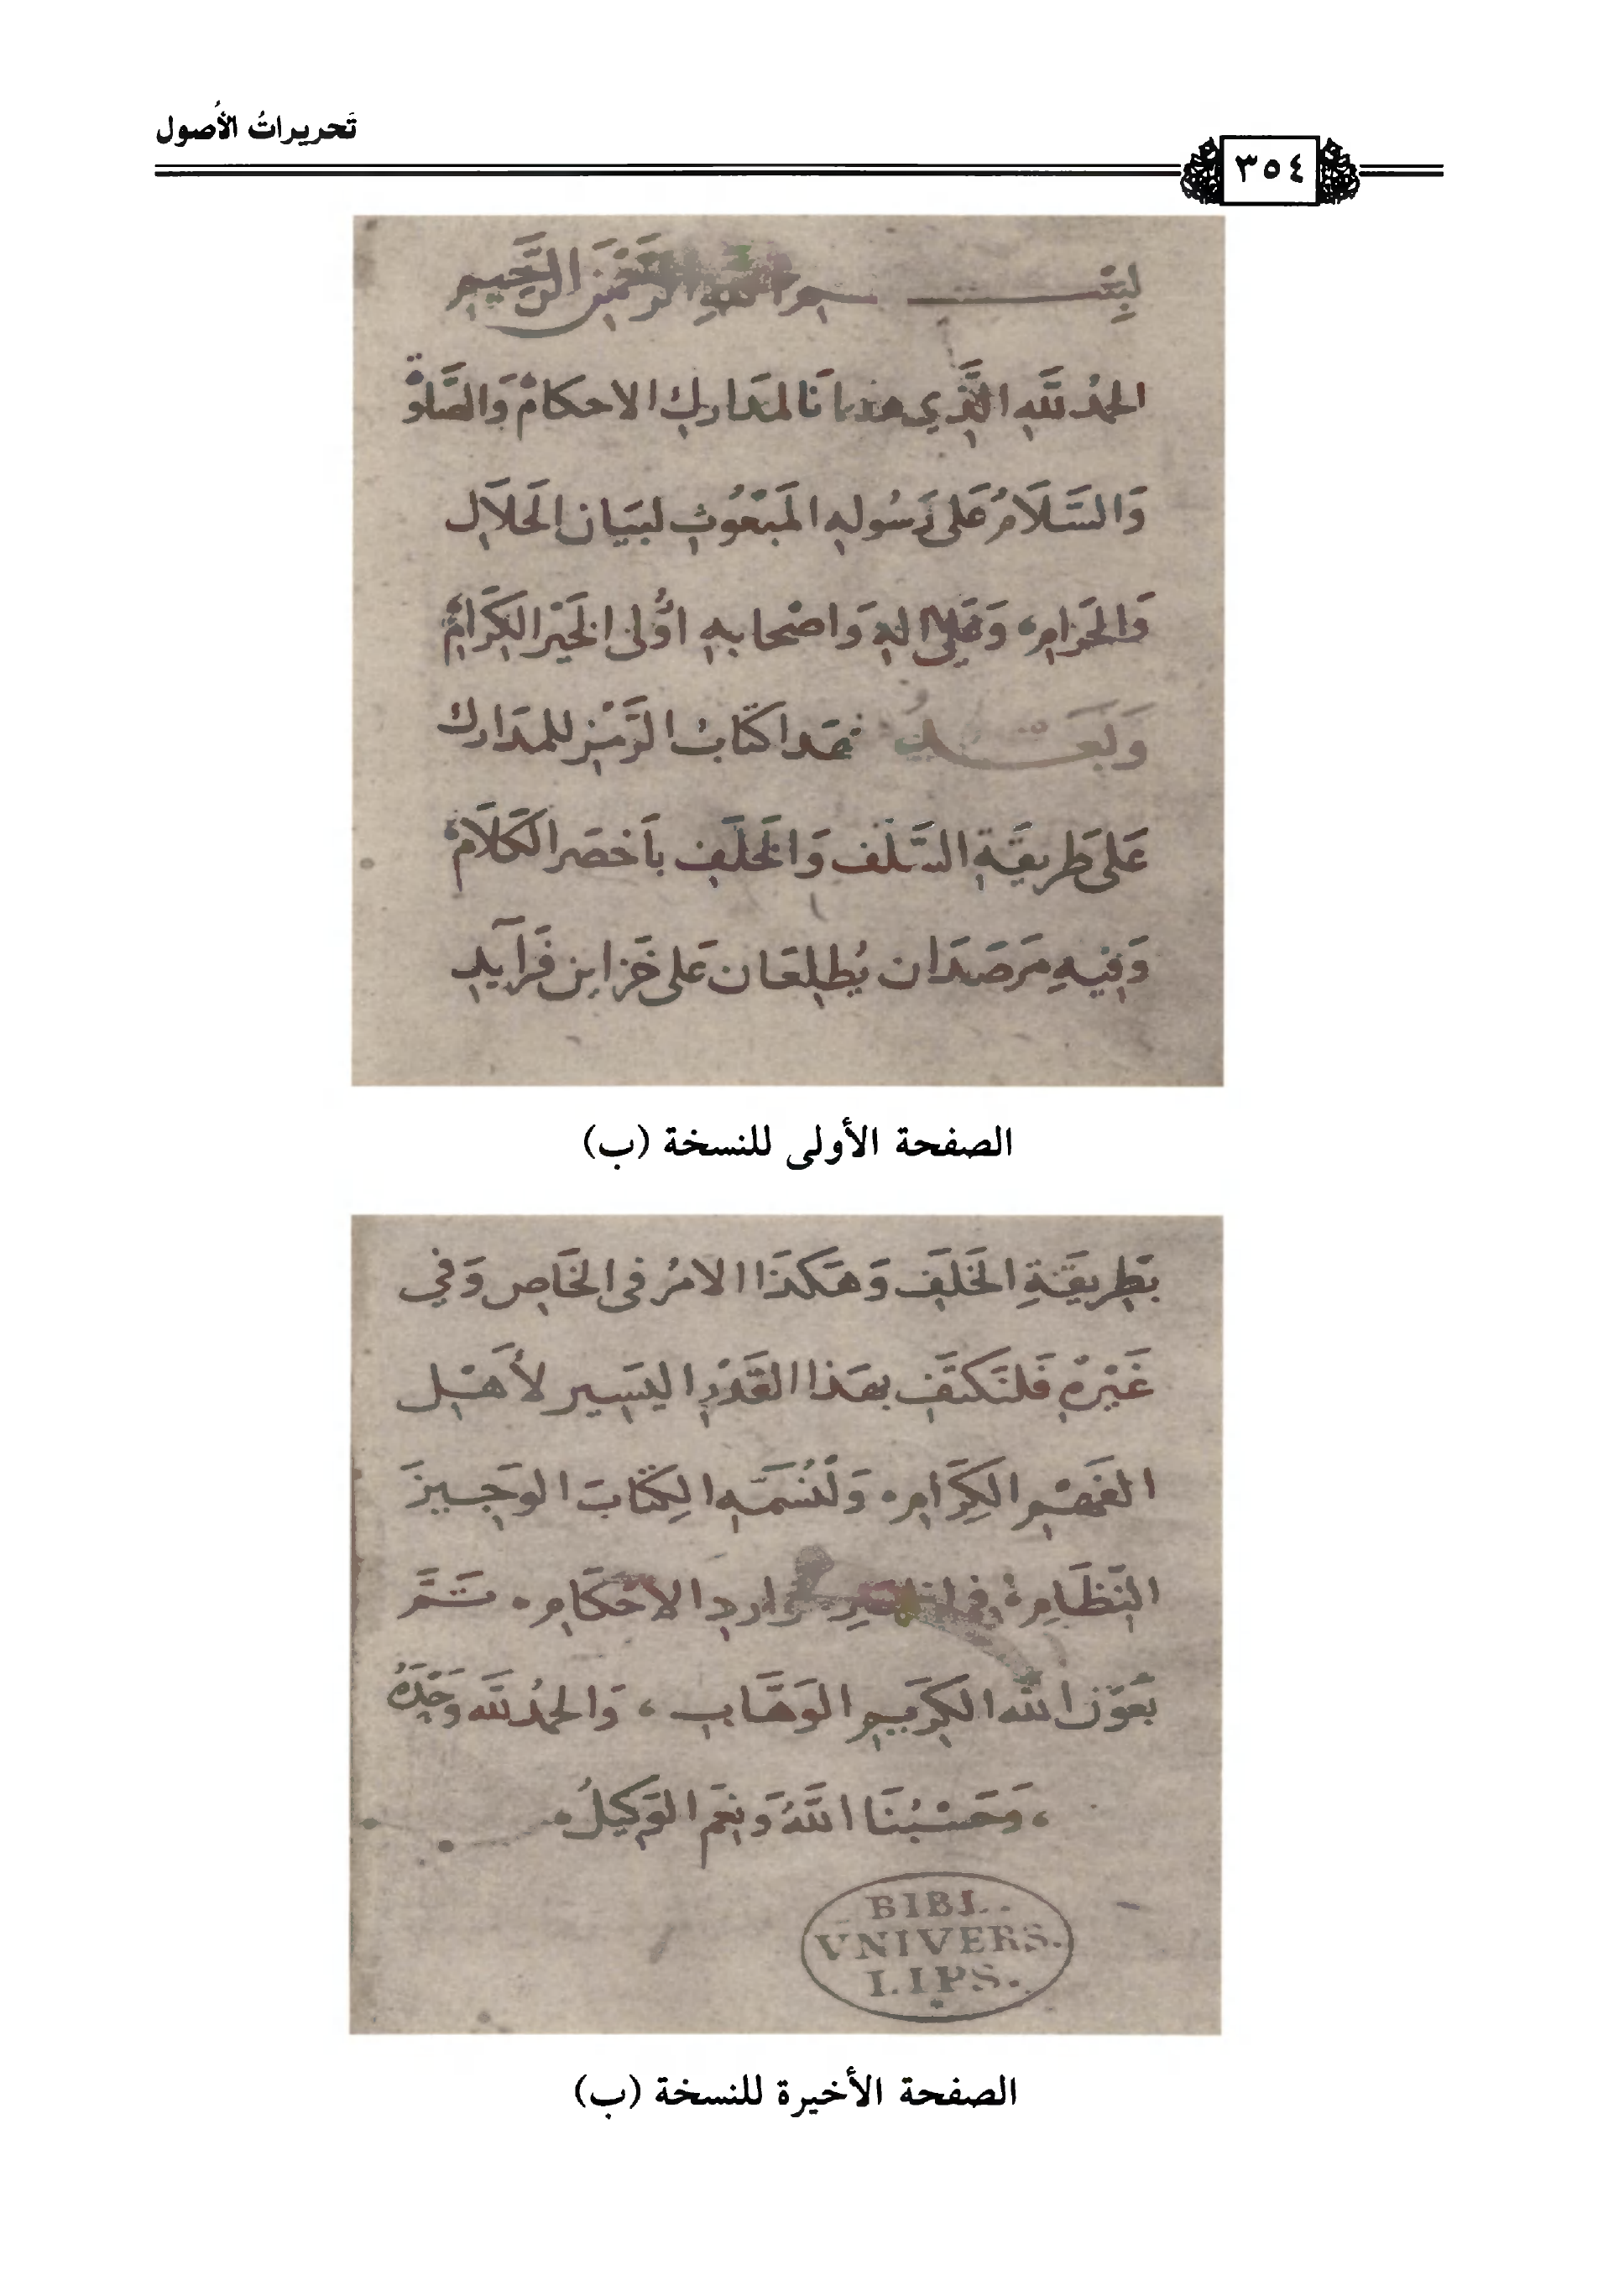 تَحريراتُ الأُصول
٣٥٤
بسم الله الرحمن الرحيم
الحمد لله الذي هدانا لمدارك الاحكام وَالصَّلوة
وَالسَّلَامُ عَلى رَسُوله المَبْعُوثِ لبيَان الحَلَال
وَالحَرَام، وَعَلى اله وَاصْحابه اوُلى الخَيْر الكرَام
وَبَعْد فهَذا كتَابُ الرَّمْز للمدَارك
عَلى طَريقَة السَّلَف وَالخَلَف بأخصَر الكَلَام
وَفيهِ مَرصَدَان يُطلِعَان عَلى خَزاين فَرآيد
الصفحة الأولى للنسخة (ب)
بَطِريقَةِ الخَلَف وَهَكذَا الامُر فى الخَاص وَفي
غَيْرهِ فَلنَكتَف بهَذا القَدْر اليَسير لأهْل
الفَهْم الكِرَام، وَلْنُسَمّه الكِتَابَ الوَجيزَ
النِّظَام، في موارد الاحْكَام. تَمَّ
بَعَوْن الله الكَريم الوَهَّاب، وَالحمدُ لله وَحْدَهُ
، وَحَسْبُنَا اللَّهُ وَنِعْمَ الوَكيلُ،
BIBL.
VNIVERS.
LIPS.
الصفحة الأخيرة للنسخة (ب)